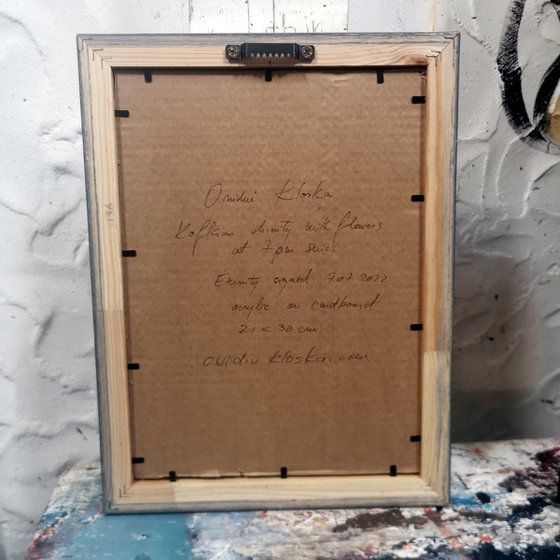 Ovidiu Kloska
Kafkian dignity with flowers
at 7 pm series
Eternity signed 7 07 2022
acrylic on cardboard
21 x 30 cm
ovidiu kloska.com
136